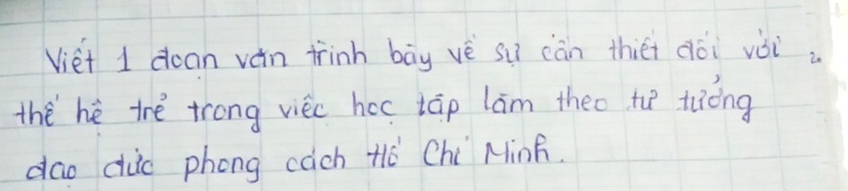 Viết 1 đoạn văn trình bày về sự cần thiết đối với
thế hệ trẻ trong việc học tập làm theo tư tưởng
đạo đức phong cách Hồ Chí Minh.